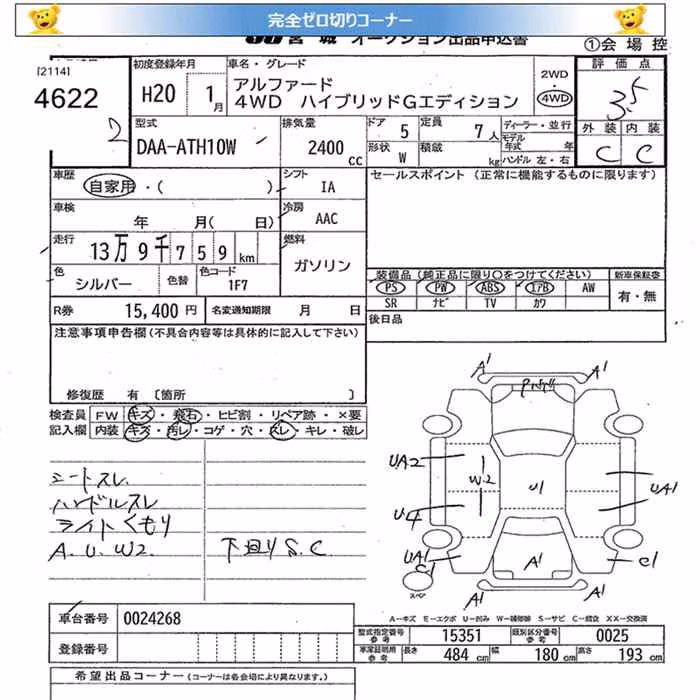 完全ゼロ切りコーナー
JU宮城 オークション出品申込書 ①会場控
[2114]
4622
2
初度登録年月
H20 1月
車名・グレード
アルファード
4WD ハイブリッドGエディション
2WD
・
4WD
評価点
3.5
外装 内装
C C
型式
DAA-ATH10W
排気量
2400 CC
ドア 5
定員 7人
形状 W
積載 kg
ディーラー・並行
モデル
年式 年
ハンドル 左・右
車歴
自家用・( )
シフト
IA
セールスポイント (正常に機能するものに限ります)
車検
年 月( 日)
冷房
AAC
走行
13万9千759km
燃料
ガソリン
色
シルバー
色替
色コード
1F7
装備品 (純正品に限り○をつけてください)
新車保証書
PS PW ABS エアB AW
SR ナビ TV カワ
有・無
R券 15,400円
名変通知期限 月 日
後日品
注意事項申告欄(不具合内容等は具体的に記入して下さい)
修復歴 有 〔箇所 〕
検査員 FW キズ・飛石・ヒビ割・リペア跡・×要
記入欄 内装 キズ・汚レ・コゲ・穴・スレ・キレ・破レ
シートスレ
ハンドルスレ
ライトくもり
A.U.W2
下回りS.C
A1 A1
UA2
W2
U1
UA1
U4
UA1
C1
A1
C1
スペア
A1 A1
A−キズ E−エクボ U−凹み W−補修跡 S−サビ C−腐食 XX−交換済
車台番号 0024268
登録番号
型式指定番号
参考
15351
類別区分番号
参考
0025
車庫証明用
参考
長さ 484cm 幅 180cm 高さ 193cm
希望出品コーナー (コーナーは各会場により異なります。)